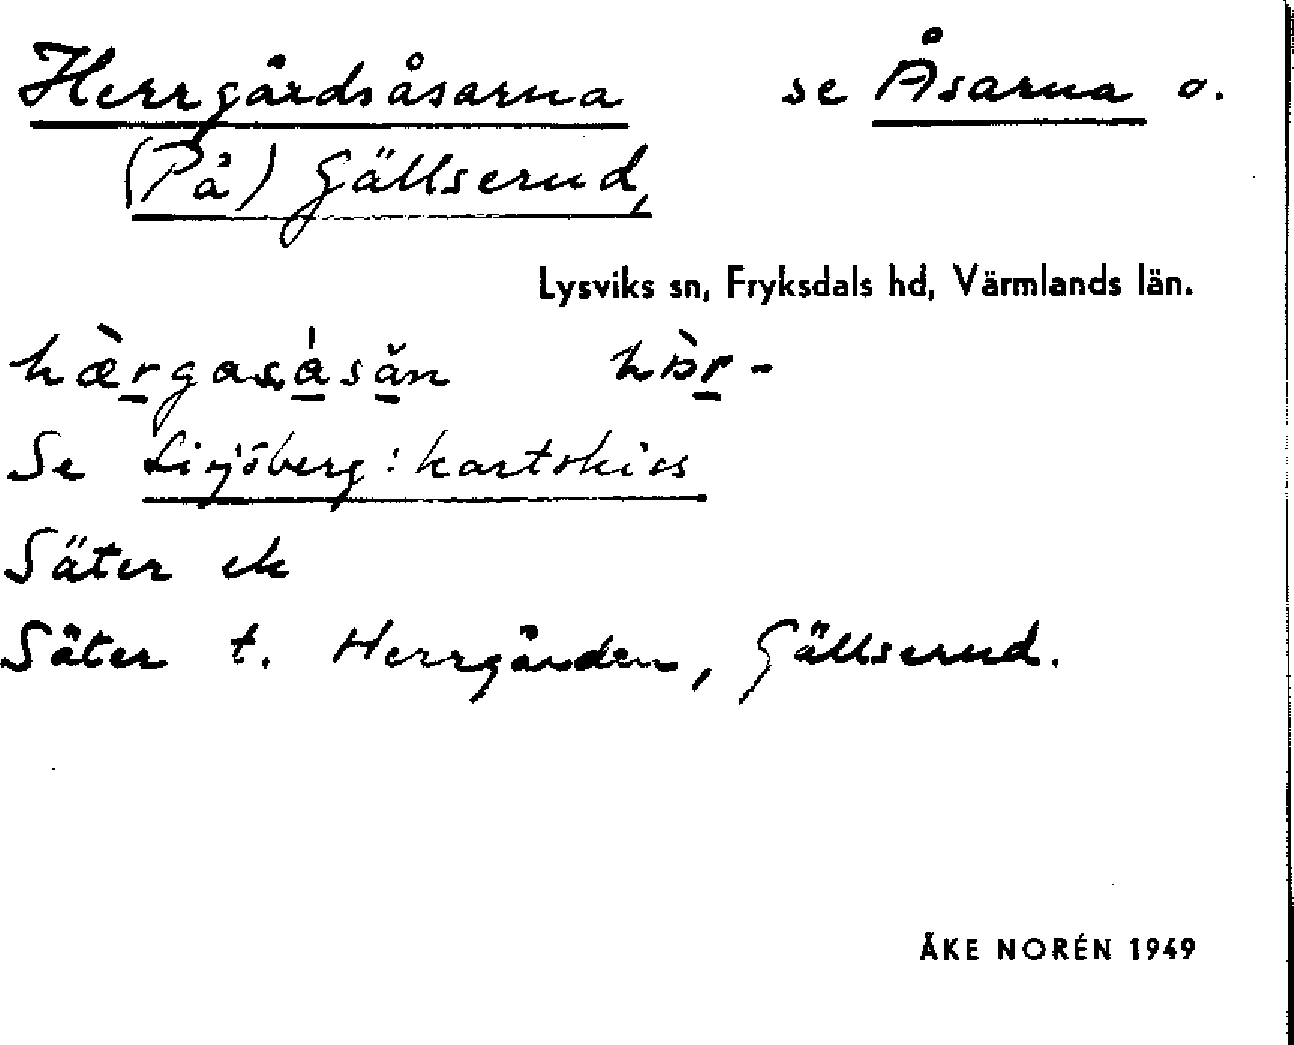 Herrgårdsåsarna se Åsarna o.
(På) Gällserud,
Lysviks sn, Fryksdals hd, Värmlands län.
Se Lisjöberg: kartskiss
Säter ek
Säter t. Herrgården, Gällserud.
ÅKE NORÉN 1949